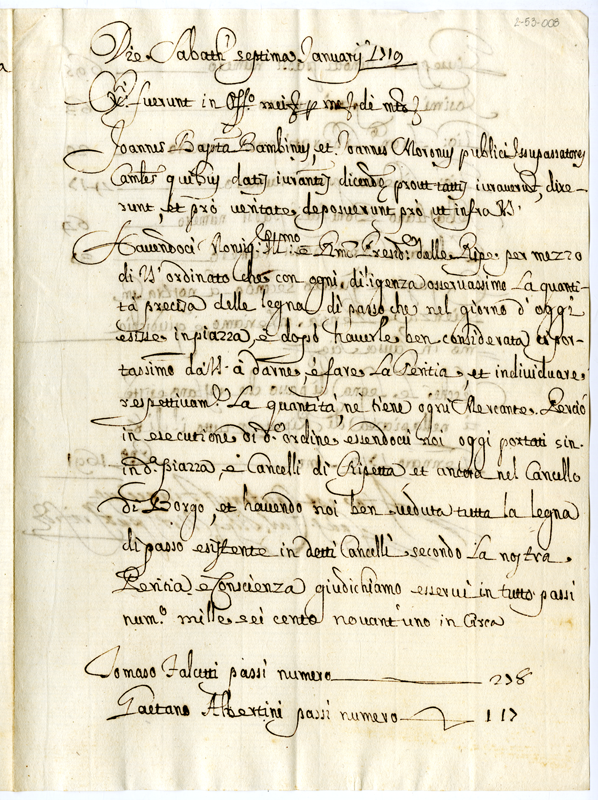 2-53-008
Die Sabathi septima Januarij 1719
fuerunt in Offo meis p me
Joannes Bapta Bambinus, et Joannes Moronus publici Issupassatores
quibus datis iurantis dicendi prout tactis iuraverunt, dixe-
runt, et prò veritate deposuerunt prò ut infra V.
Havendoci Monsig.r Ill.mo e R.mo Presid.e delle Ripe per mezzo
di V. ordinato che con ogni diligenza osservassimo La quanti-
tà precisa delle legna di passo che nel giorno d'oggi
esiste in piazza, e dopò haverle ben considerata ci por-
tassimo da V. à darne, e fare La Peritia, et individuare
respettivam.te La quantità, nè tiene ogni Mercante. Perciò
in esecutione di d.o ordine essendoci noi oggi portati sin
in d.a Piazza, e Cancelli di Ripetta et ancora nel Cancello
di Borgo, et havendo noi ben veduta tutta la legna
di passo esistente in detti Cancelli secondo La nostra
Peritia e Conscienza giudichiamo esservi in tutto passi
num.o mille sei cento novant'uno in Circa
Tomaso Falcitti passi numero 298
Gaetano Albertini passi numero 117